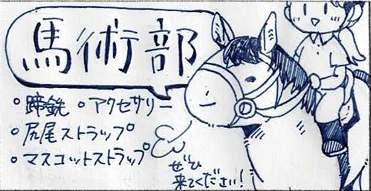 馬術部
•蹄銑 •アクセサリー
•尻尾ストラップ
•マスコットストラップ
ぜひ
来てください!